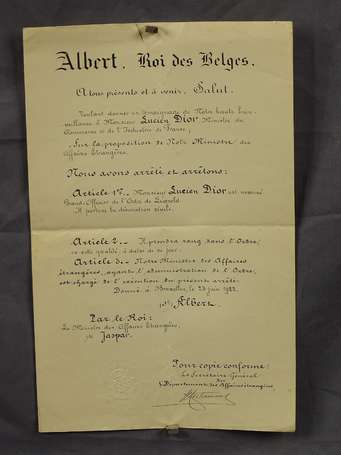 Albert. Roi des Belges.
A tous présents et à venir, Salut.
Voulant donner un témoignage de Notre haute bien-
veillance à Monsieur Lucien Dior, Ministre du
Commerce et de l'Industrie de France,
Sur la proposition de Notre Ministre des
Affaires Etrangères,
Nous avons arrêté et arrêtons:
Article 1er. Monsieur Lucien Dior est nommé
Grand Officier de l'Ordre de Léopold.
Il portera la décoration civile.
Article 2.- Il prendra rang dans l'Ordre,
en cette qualité, à dater de ce jour.
Article 3.- Notre Ministre des Affaires
étrangères, ayant l'administration de l'Ordre,
est chargé de l'exécution du présent arrêté.
Donné à Bruxelles, le 23 juin 1922.
Albert
Par le Roi:
Le Ministre des Affaires Etrangères,
Jaspar.
Pour copie conforme:
Le Secrétaire Général
du
Département des Affaires étrangères,